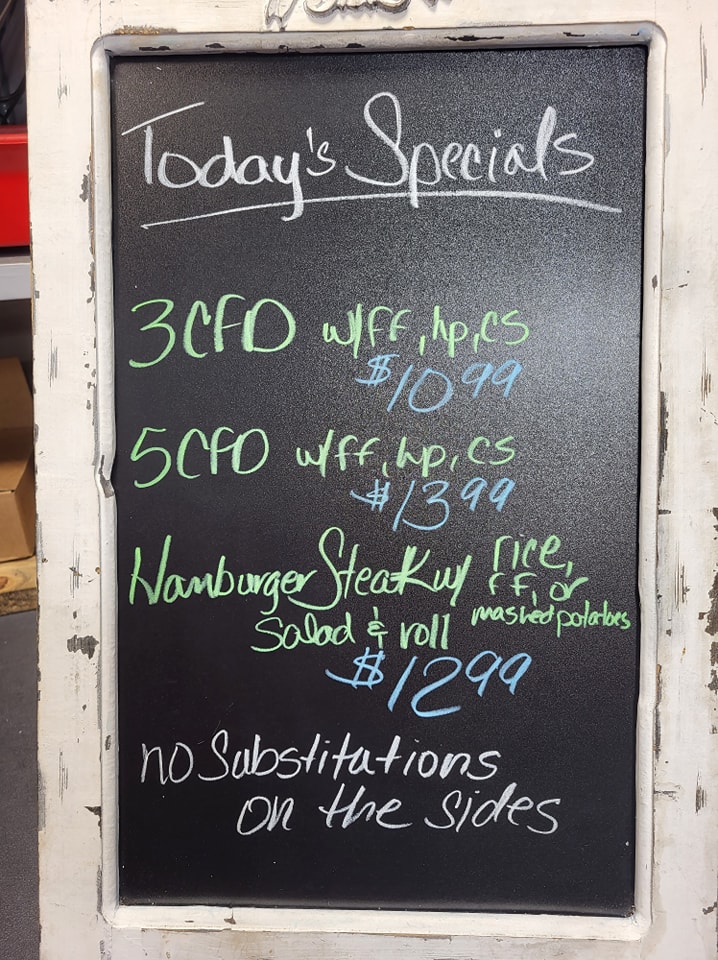 Today's Specials
3CFD w/ff, hp, cs
$10.99
5CFD w/ff, hp, cs
$13.99
Hamburger Steak w/ rice,
ff, or
mashed potatoes
salad & roll
$12.99
no Substitutions
on the sides